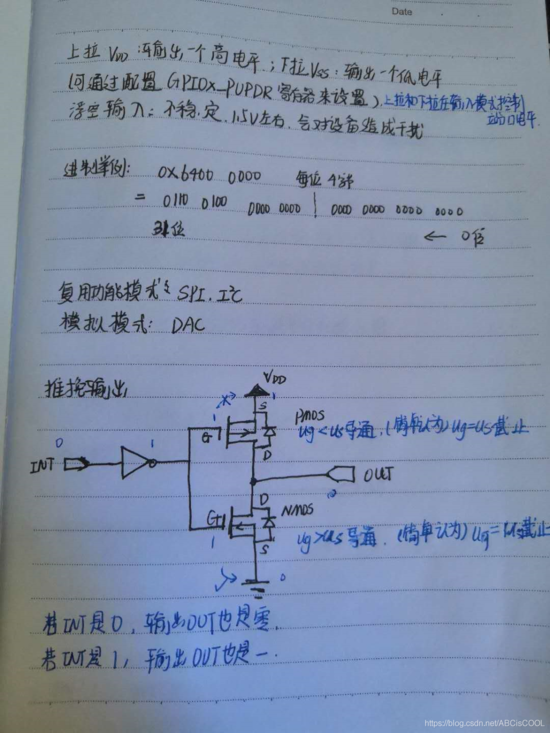 Date
上拉 VDD:输出一个高电平;下拉VSS:输出一个低电平
(可通过配置 GPIOX_PUPDR 寄存器来设置) 上拉和下拉在输入模式控制
浮空输入:不稳定,1.5V左右,会对设备造成干扰
进制举例: 0X6400 0000 每位4字
= 0110 0100 0000 0000 | 0000 0000 0000 0000
31位 ← 0位
复用功能模式: SPI, I²C
模拟模式: DAC
推挽输出
VDD
1
S
PMOS
G
Ug<Us导通,(简单认为)Ug=Us截止
0 1 1
INT
D
OUT
0
D
NMOS
G
1
Ug>Us导通,(简单认为)Ug=Us截止
S
0
若INT是0,输出OUT也是零.
若INT是1,输出OUT也是一.
https://blog.csdn.net/ABCisCOOL